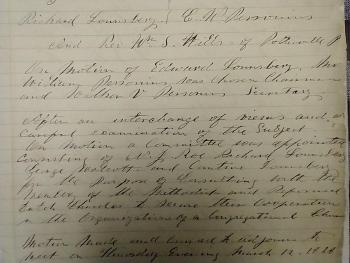 Richard Lounsbery, E. W. Personius
and Rev Wm S. Hills of Potterville P
On Motion of Edward Lounsbery, Mr
William Personius was chosen Chairman
and Walker V Personius Secretary
After an interchange of views and a
careful examination of the Subject
On Motion a Committee was appointed
Consisting of W. J. Richard Lounsbery
George and Lounsbery
for the purpose of Consulting with the
members of the Methodist and Reformed
Dutch Churches to secure their Cooperation
in the Organization of a Congregational Church
Motion Made and Carried to adjourn to
meet on Thursday Evening March 12,